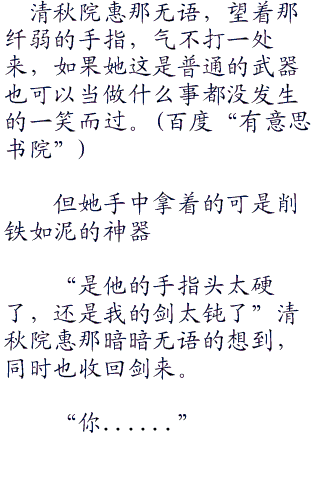 清秋院惠那无语，望着那
纤弱的手指，气不打一处
来，如果她这是普通的武器
也可以当做什么事都没发生
的一笑而过。(百度“有意思
书院”)
但她手中拿着的可是削
铁如泥的神器
“是他的手指头太硬
了，还是我的剑太钝了”清
秋院惠那暗暗无语的想到，
同时也收回剑来。
“你......”